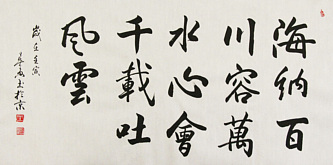 海納百
川容萬
水心會
千載吐
風雲
歲在壬寅
於京